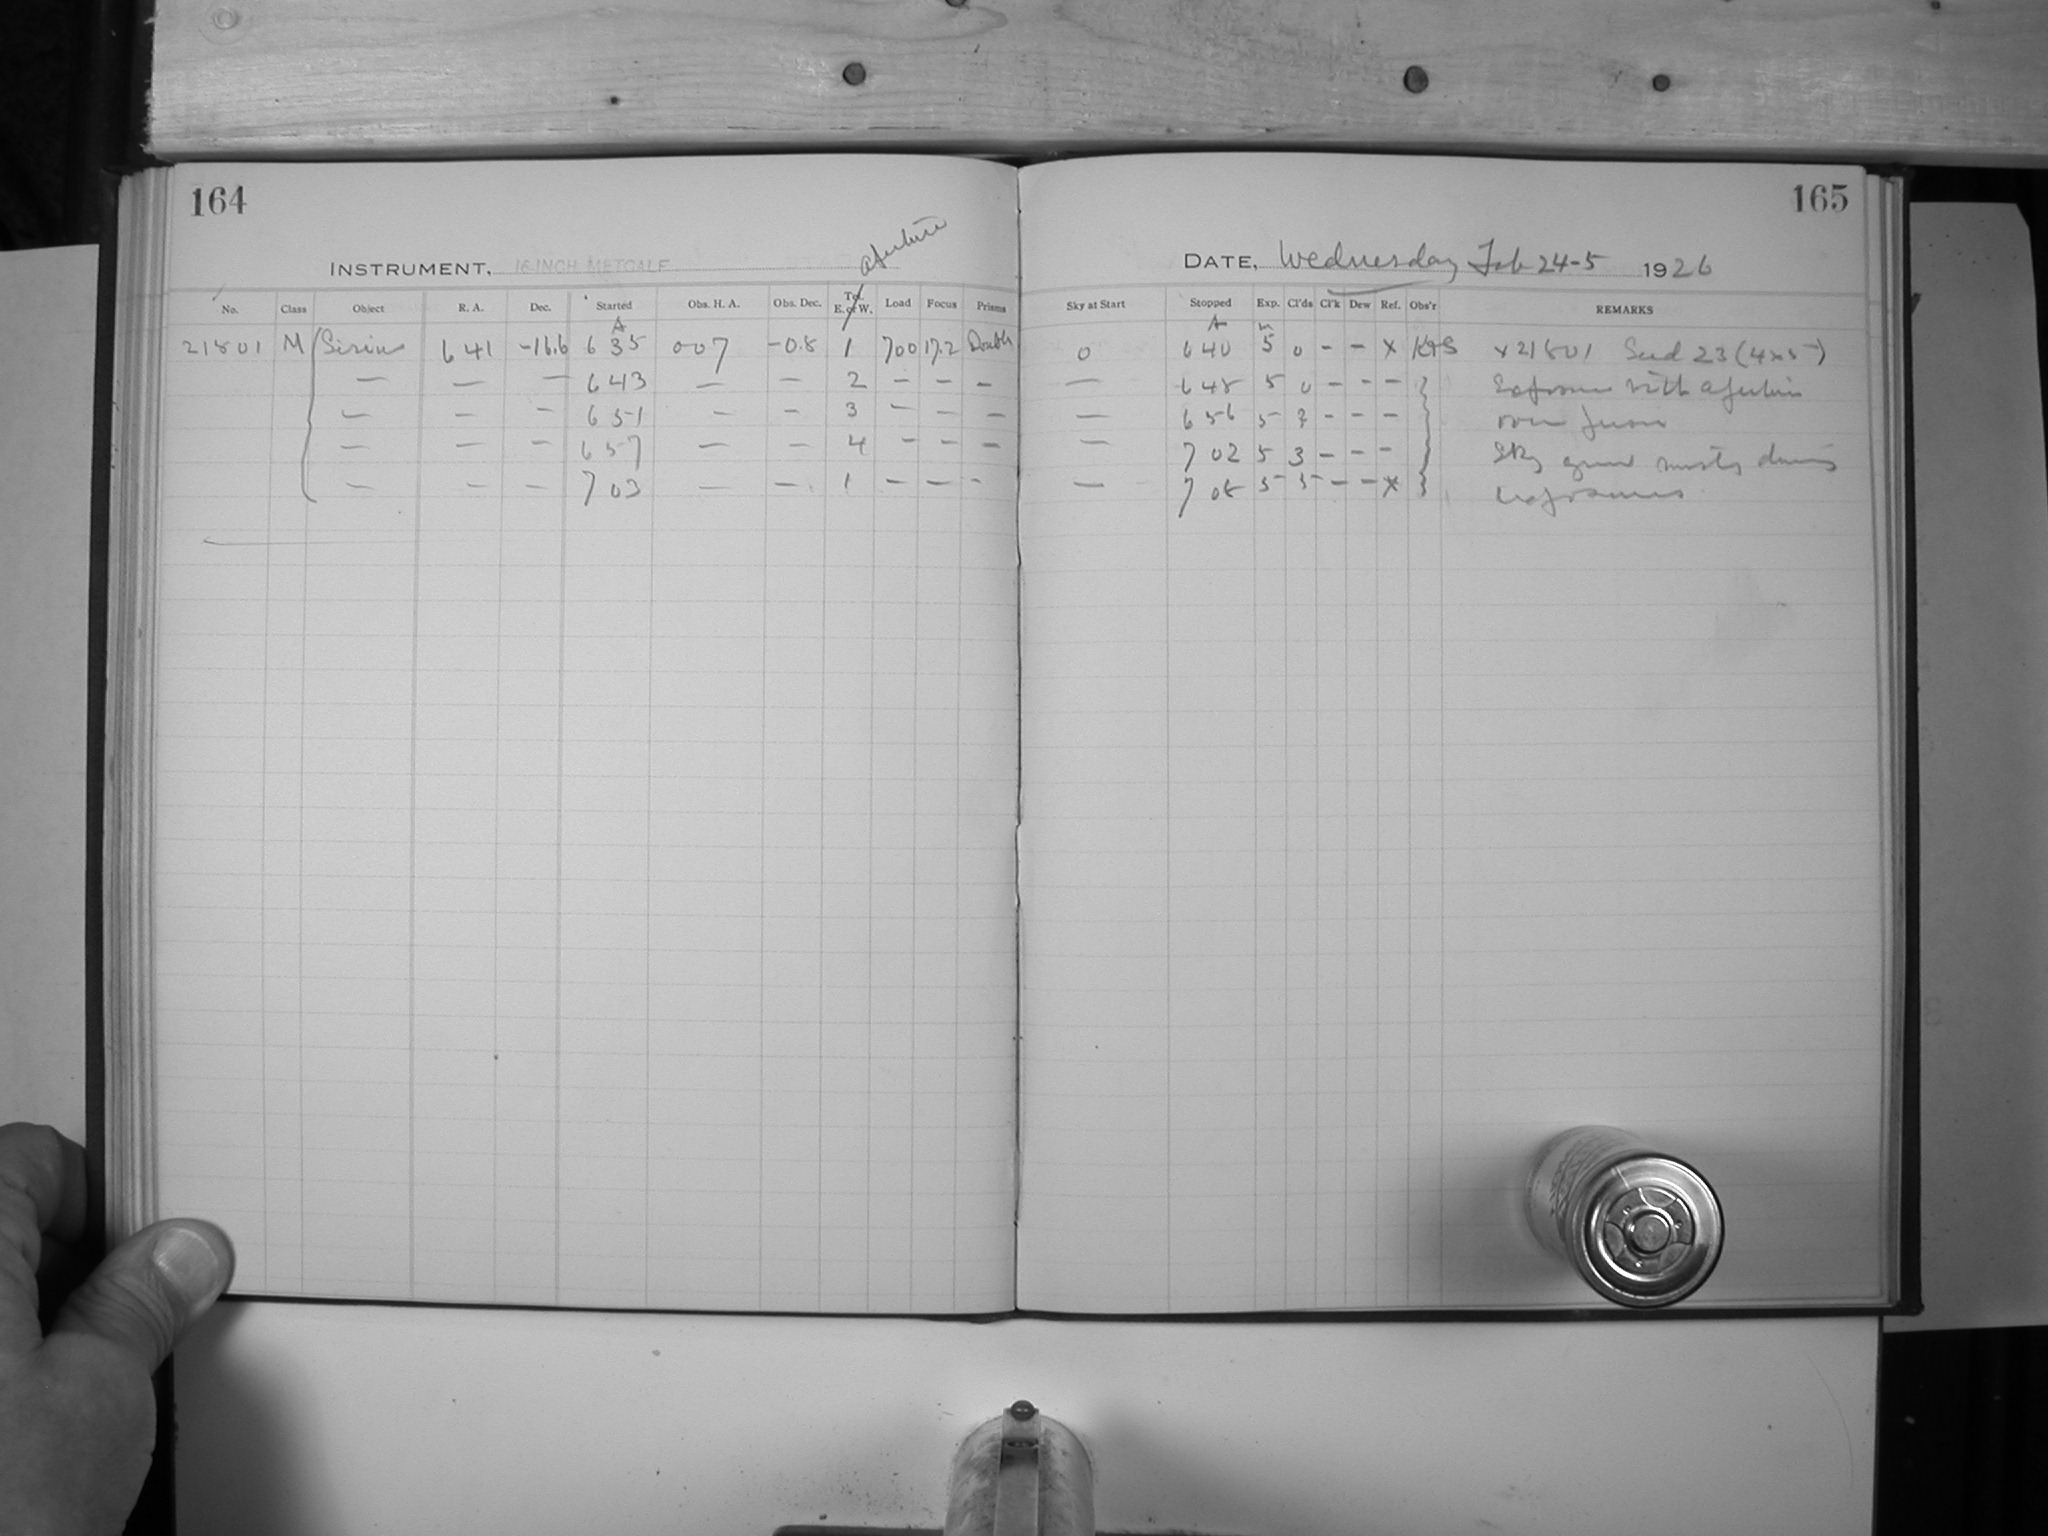 164
INSTRUMENT, 16-INCH METCALF aperture
No. Class Object R. A. Dec. Started Obs. H. A. Obs. Dec. Tel. E. or W. Load Focus Prisms
21801 M Sirius 6 41 -16.6 6 35 0 07 -0.8 1 700 17.2 Double
— — — 6 43 — — 2 — — —
— — — 6 51 — — 3 — — —
— — — 6 57 — — 4 — — —
— — — 7 03 — — 1 — — —
165
DATE, Wednesday Feb 24-5 1926
Sky at Start Stopped Exp. Cl'ds Cl'k Dew Ref. Obs'r REMARKS
0 6 40 5 0 - - x x21801 Seed 23 (4x5)
— 6 48 5 0 - - - Exposures with aperture
— 6 56 5 - - - over
— 7 02 5 3 - - - Sky grew misty during
— 7 08 5 5 - - x exposures